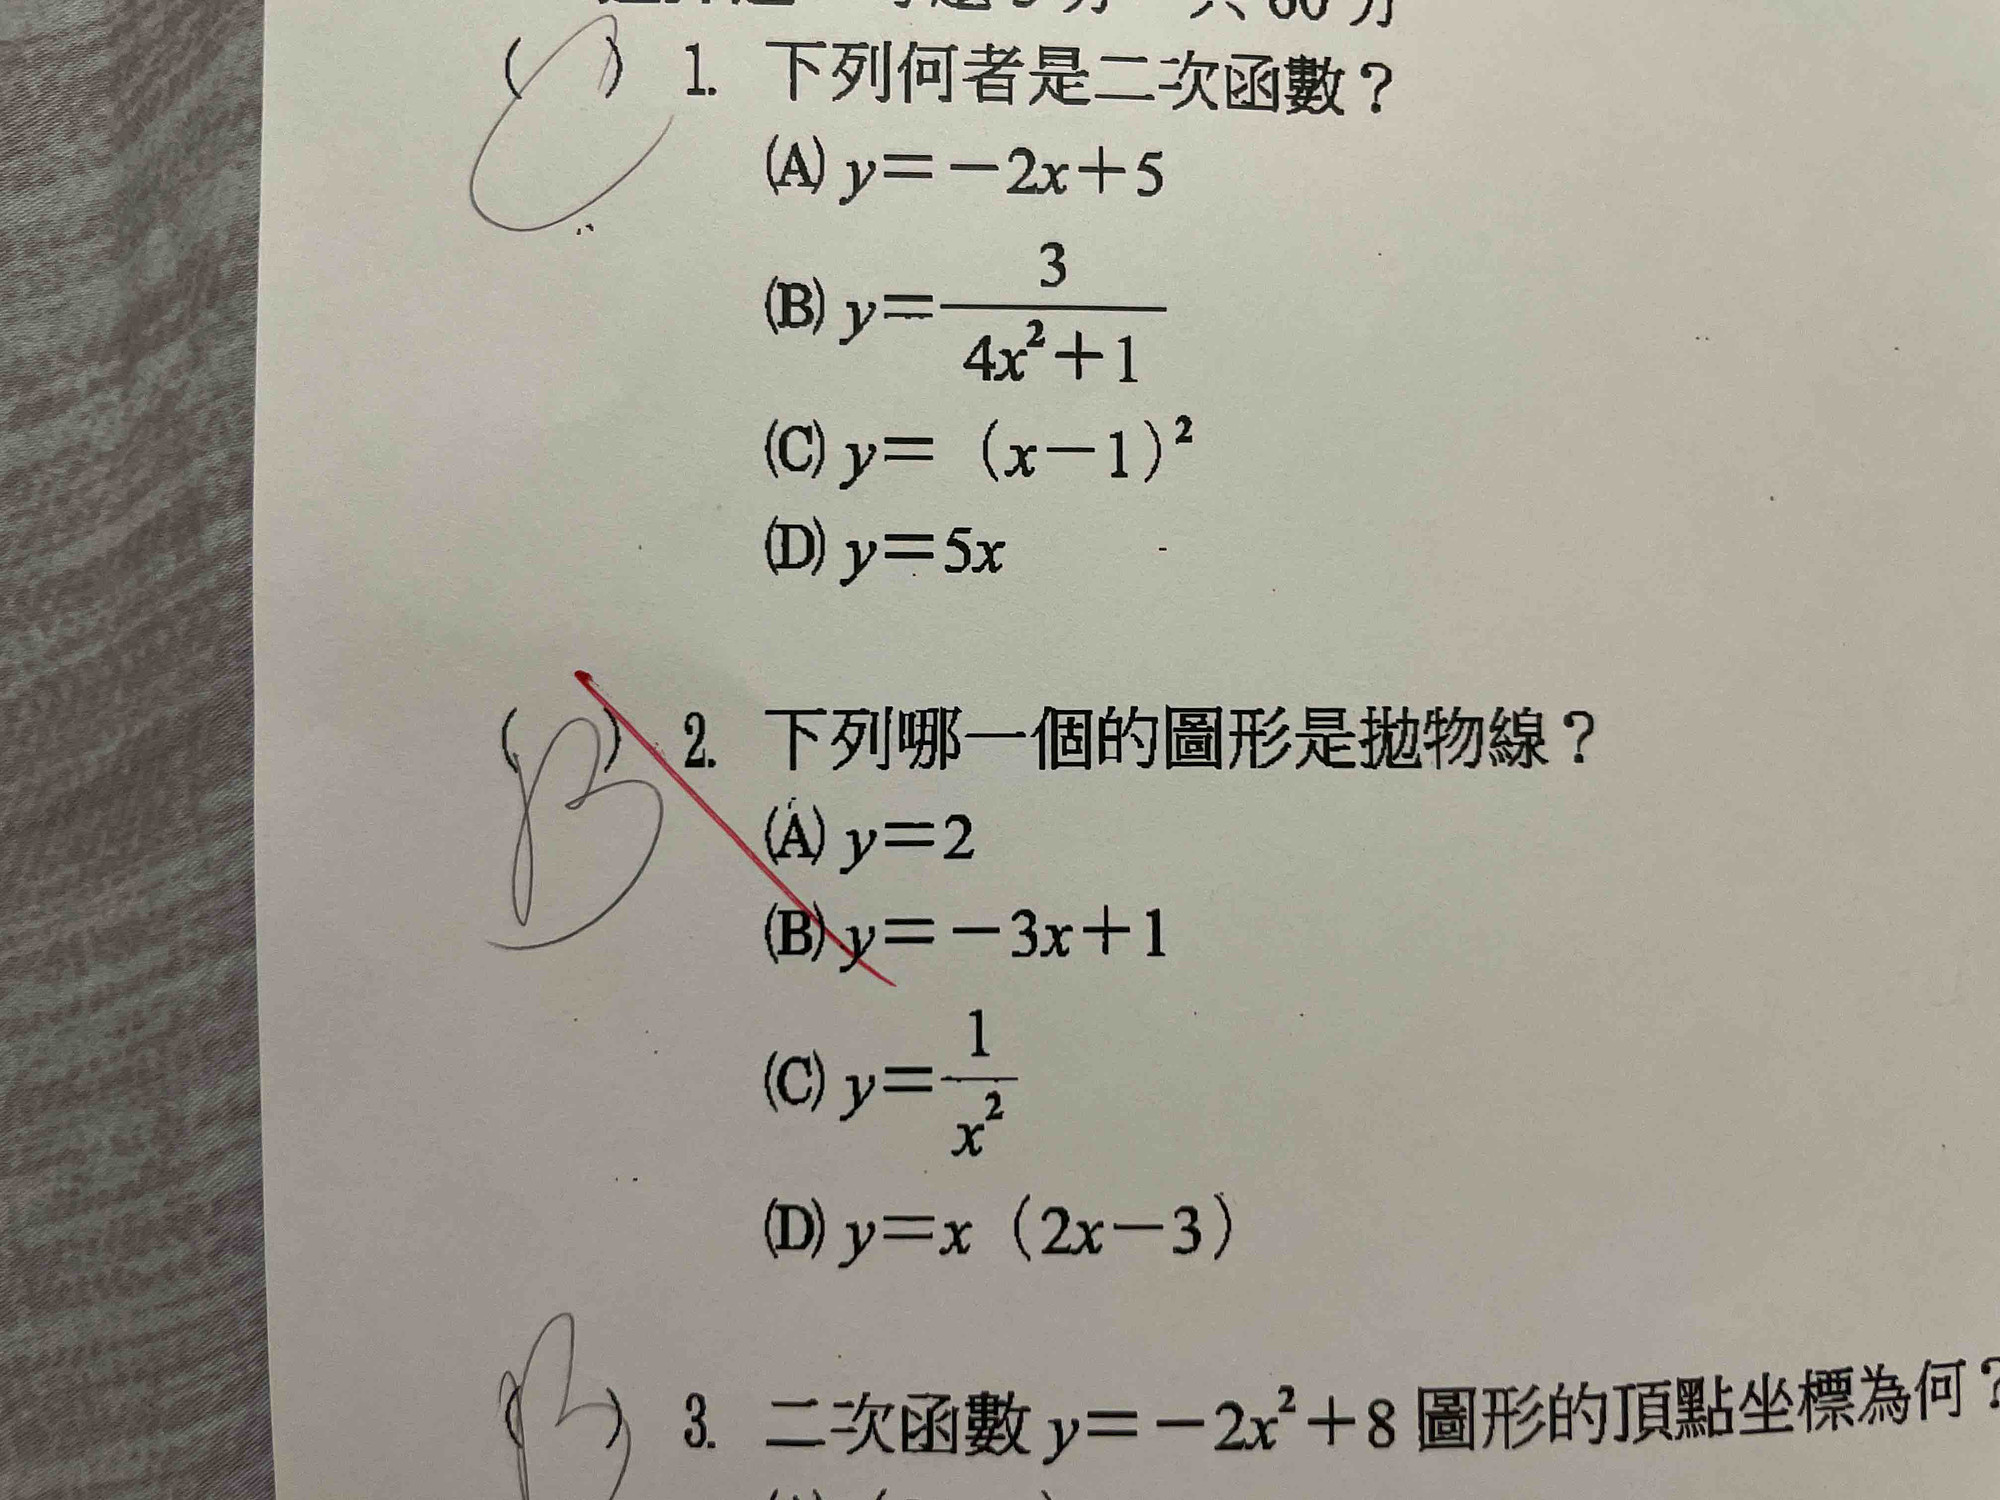 共 60 分
(C) 1. 下列何者是二次函數？
(A) y＝－2x＋5
(B) y＝3/(4x²＋1)
(C) y＝（x－1）²
(D) y＝5x
(B) 2. 下列哪一個的圖形是拋物線？
(A) y＝2
(B) y＝－3x＋1
(C) y＝1/x²
(D) y＝x（2x－3）
(B) 3. 二次函數 y＝－2x²＋8 圖形的頂點坐標為何？